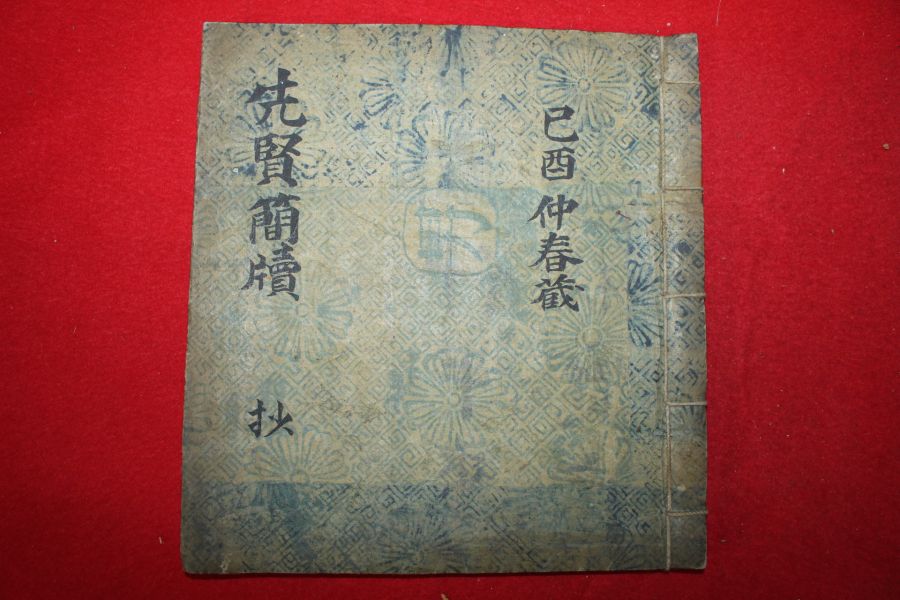 己酉 仲春蔵
先賢簡牘 抄